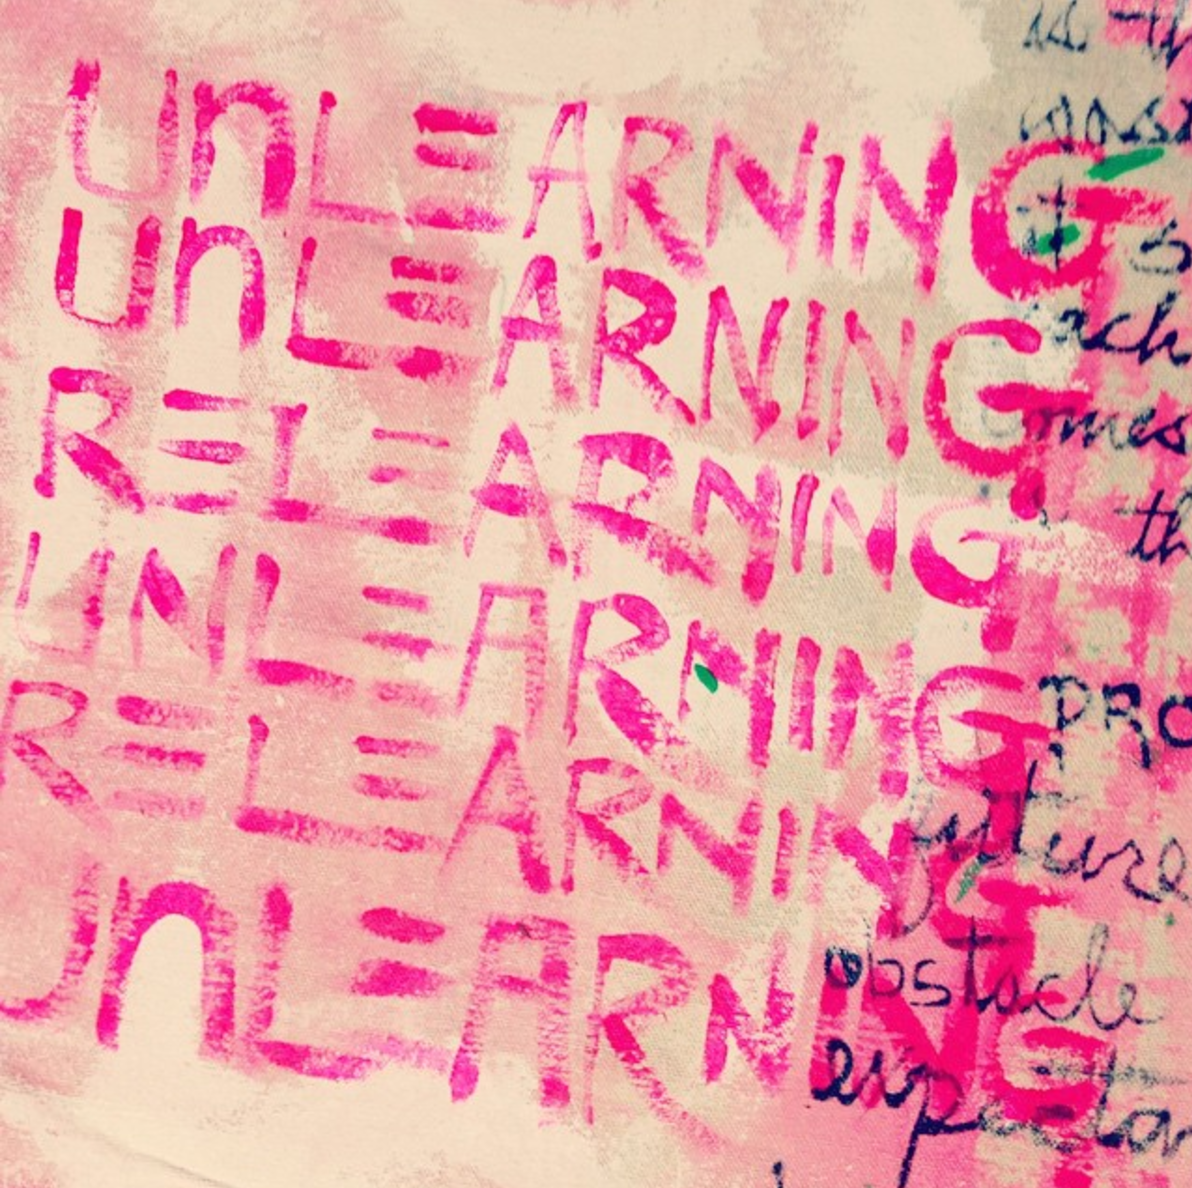 UnLEARNING
UnLEARNING
RELEARNING
UNLEARNING
RELEARNING
UnLEARNING
is th
it s
each
omes
th
PRO
future
obstacle